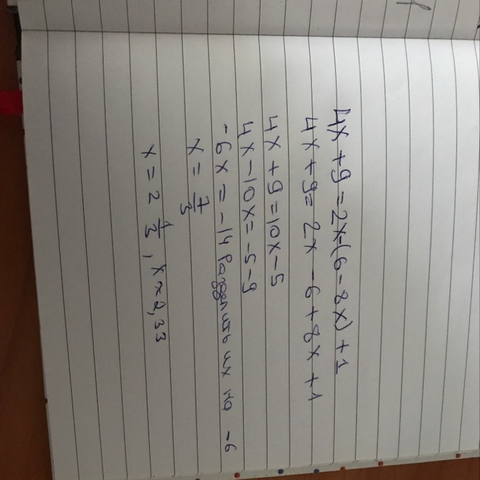 4x + 9 = 2x - (6 - 8x) + 1
4x + 9 = 2x - 6 + 8x + 1
4x + 9 = 10x - 5
4x - 10x = -5 - 9
-6x = -14 Разделить их на -6
x = 7/3
x = 2 1/3, x ≈ 2,33